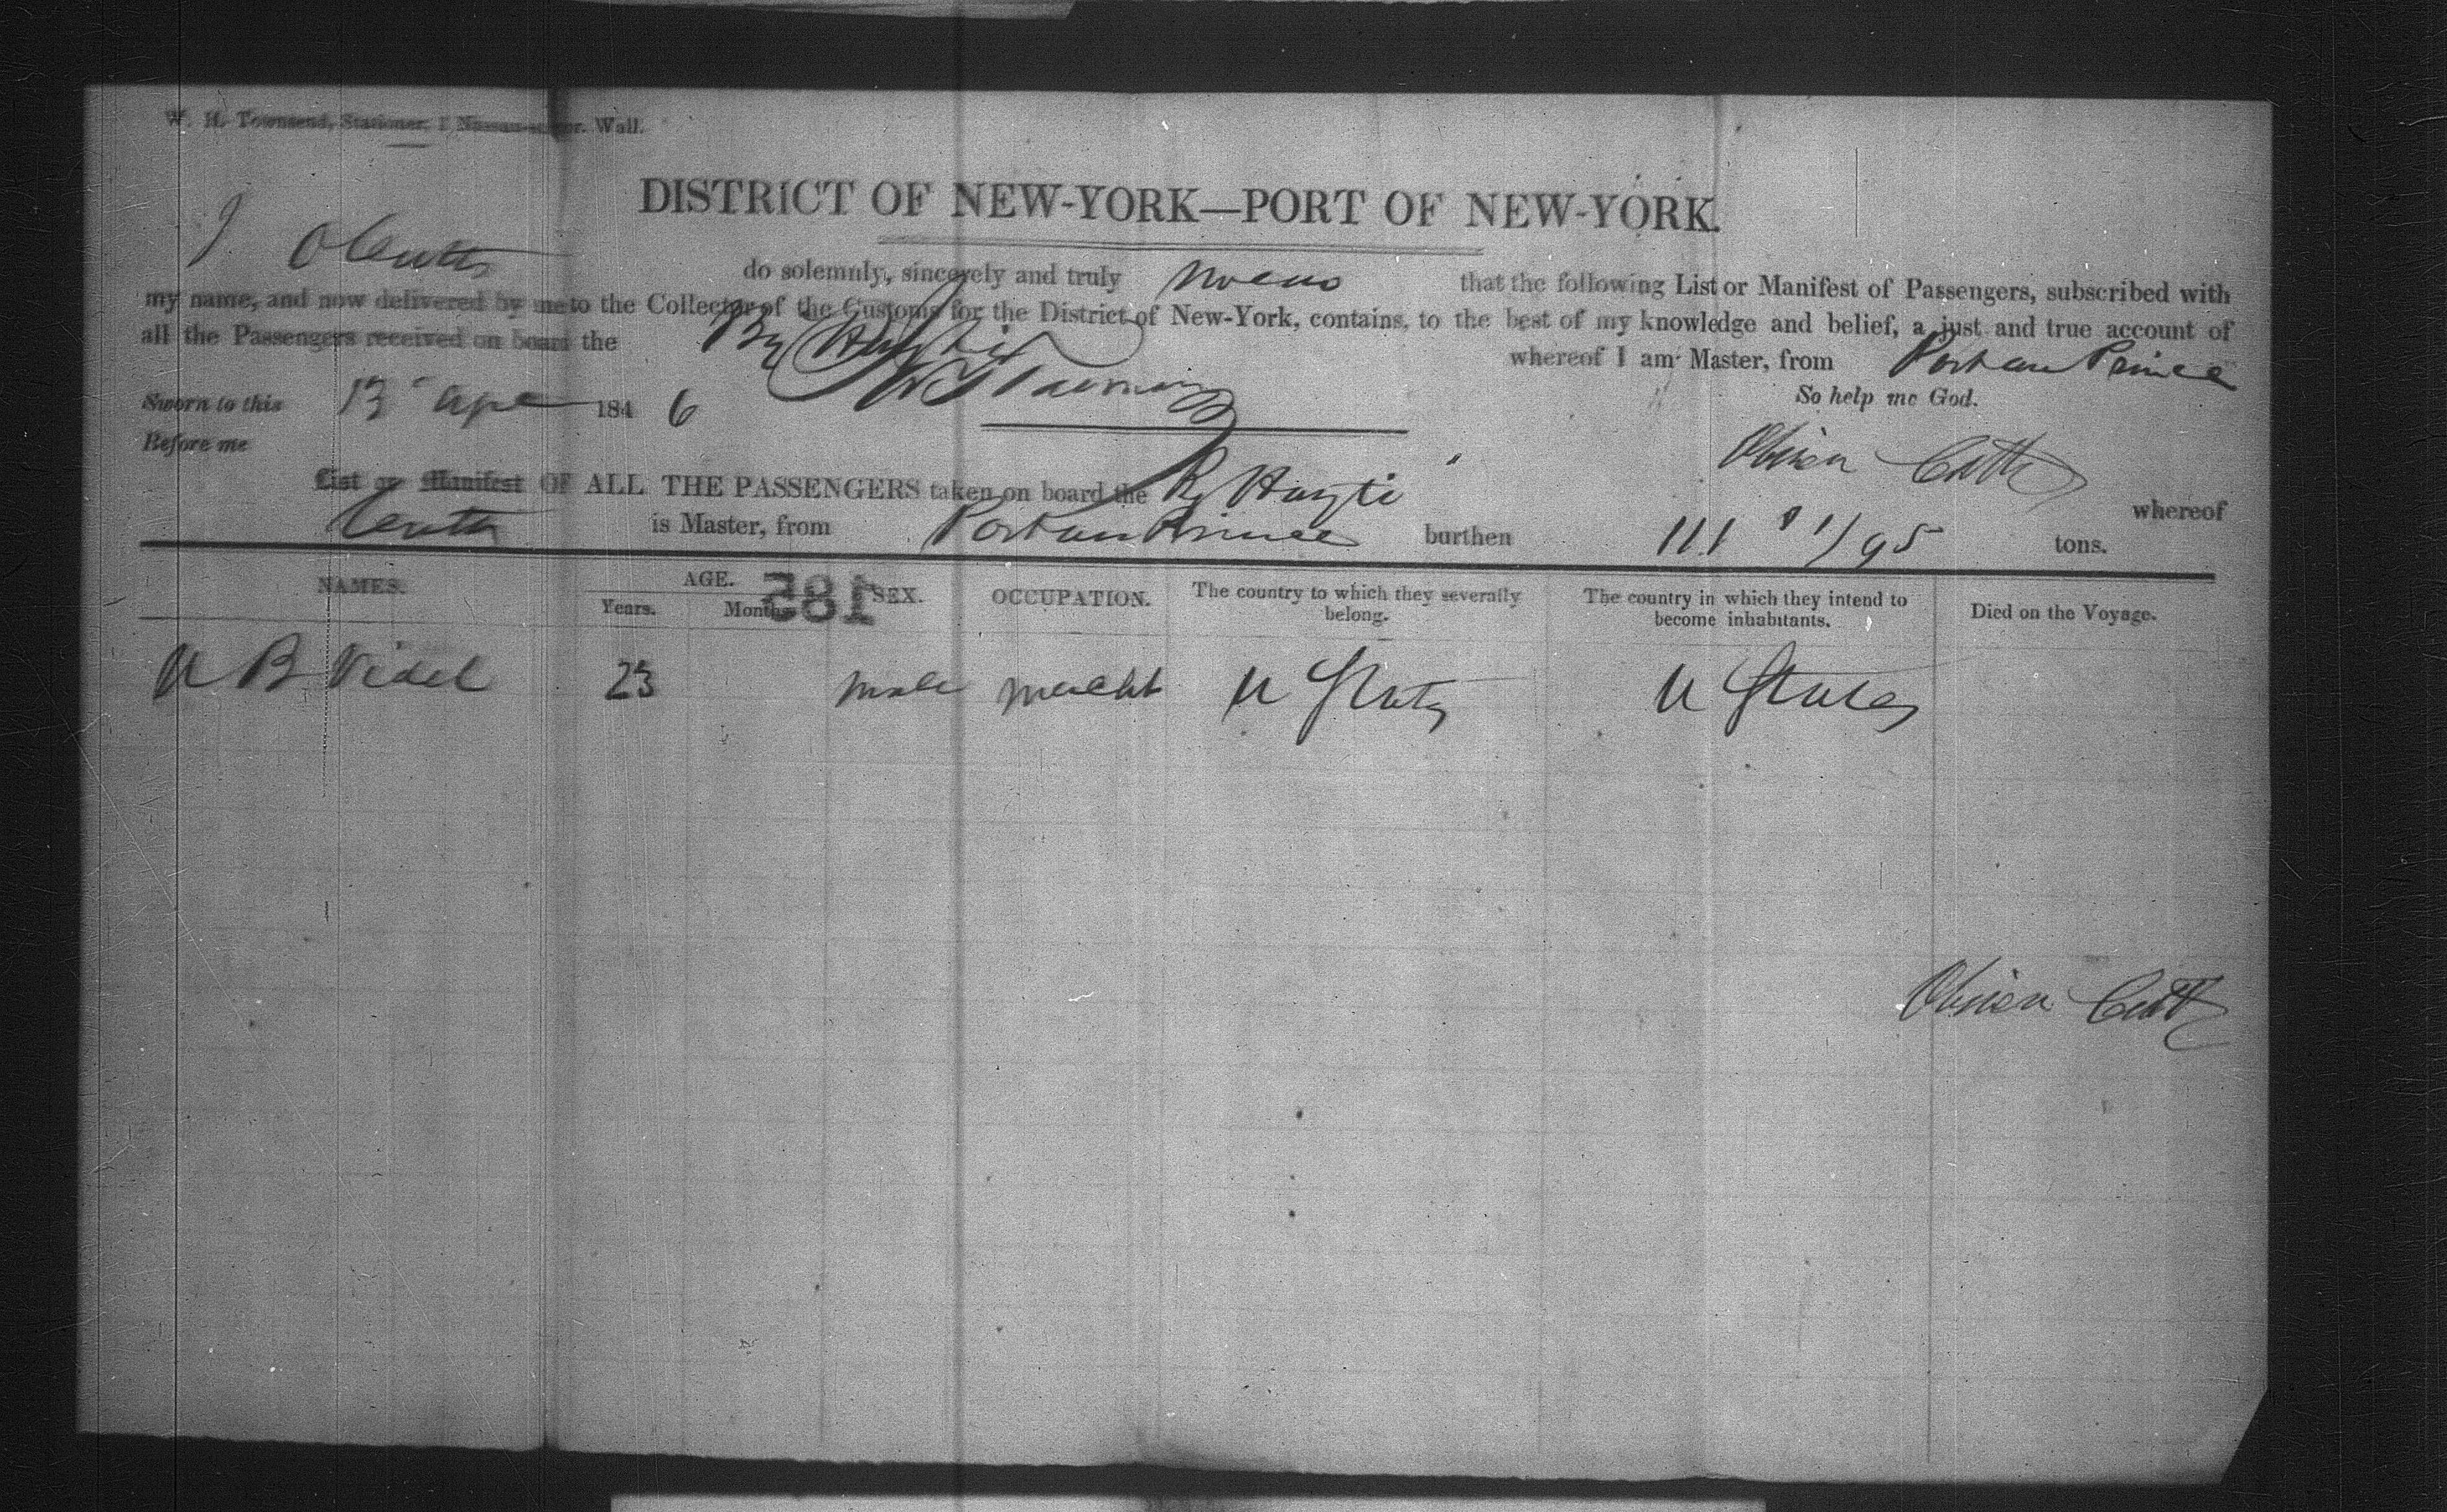 W. H. Townsend, Stationer, 1 Nassau-st. cor. Wall.
DISTRICT OF NEW-YORK—PORT OF NEW-YORK.
I O Cutts do solemnly, sincerely and truly swear that the following List or Manifest of Passengers, subscribed with
my name, and now delivered by me to the Collector of the Customs for the District of New-York, contains, to the best of my knowledge and belief, a just and true account of
all the Passengers received on board the Bg Hayti whereof I am Master, from Port au Prince
Sworn to this 13 Apl 1846 So help me God.
Before me
List or Manifest OF ALL THE PASSENGERS taken on board the Bg Hayti whereof
Cutts is Master, from Port au Prince burthen 111 81/95 tons.
NAMES. AGE. SEX. OCCUPATION. The country to which they severally belong. The country in which they intend to become inhabitants. Died on the Voyage.
Years. Months.
185
B Videl 23 male mercht U States U States
Cutts